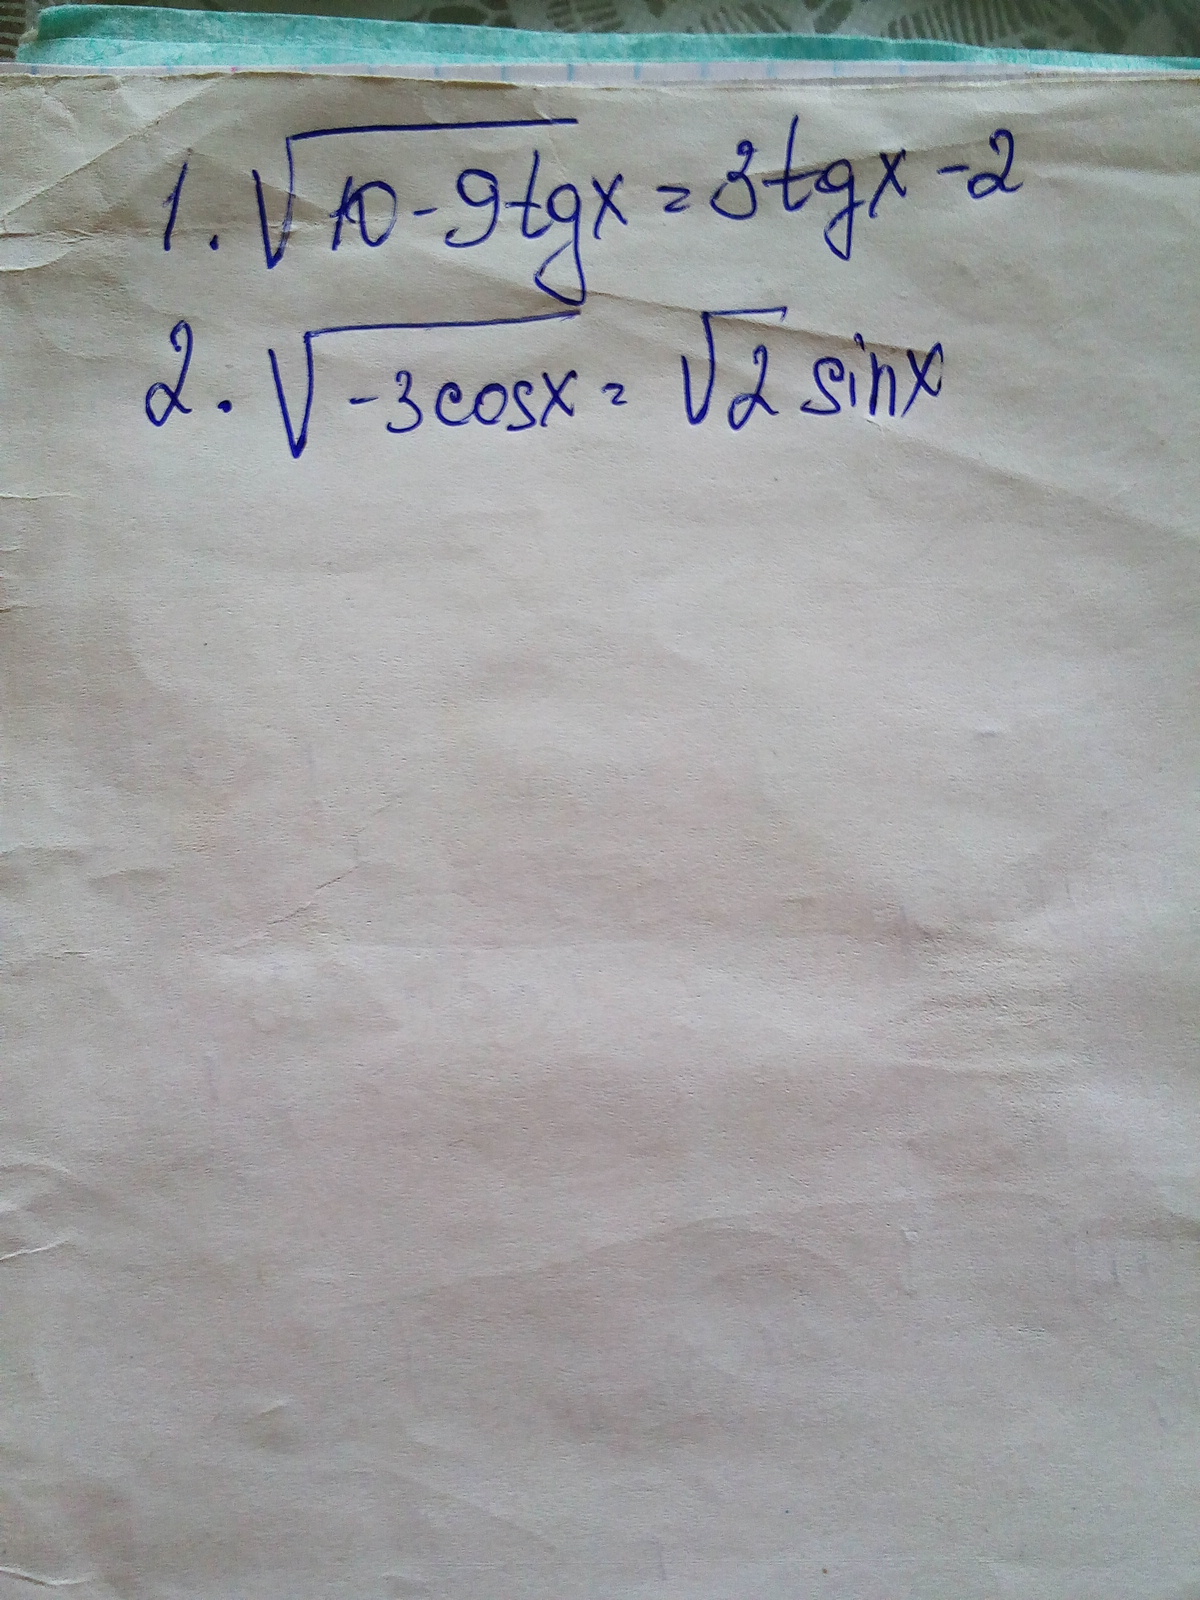 1. √10-9tgx = 3tgx-2
2. √-3cosx = √2 sinx